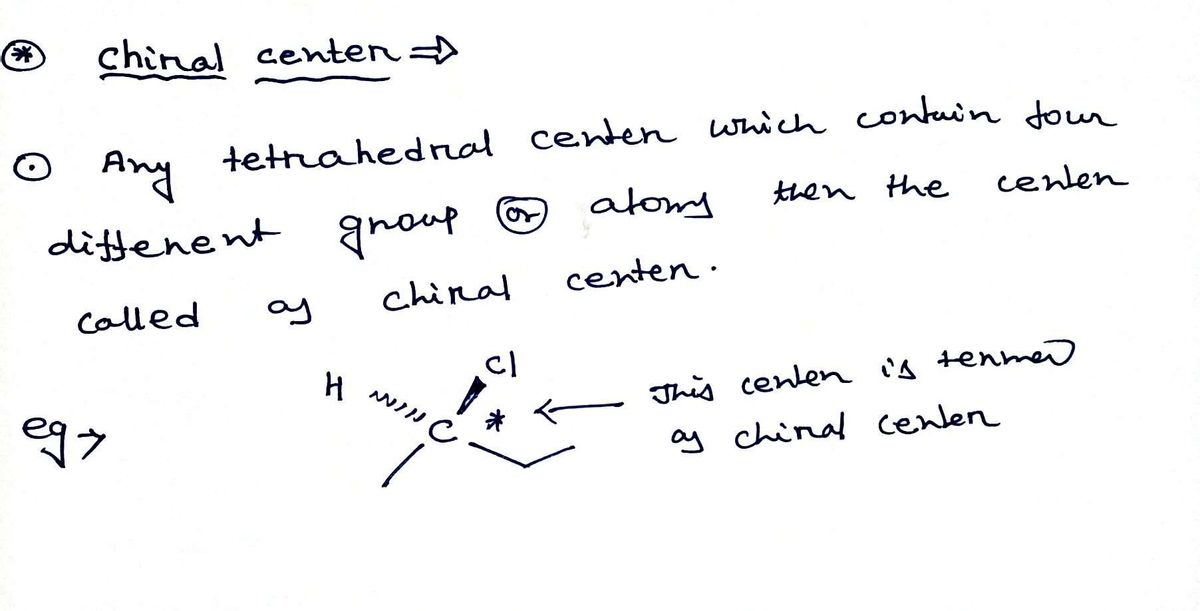 ⊛ Chiral center ⇒
⊙ Any tetrahedral center which contain four
different group (or) atoms then the center
called as chiral center.
eg →
H
Cl
C *
← This center is termed
as chiral center